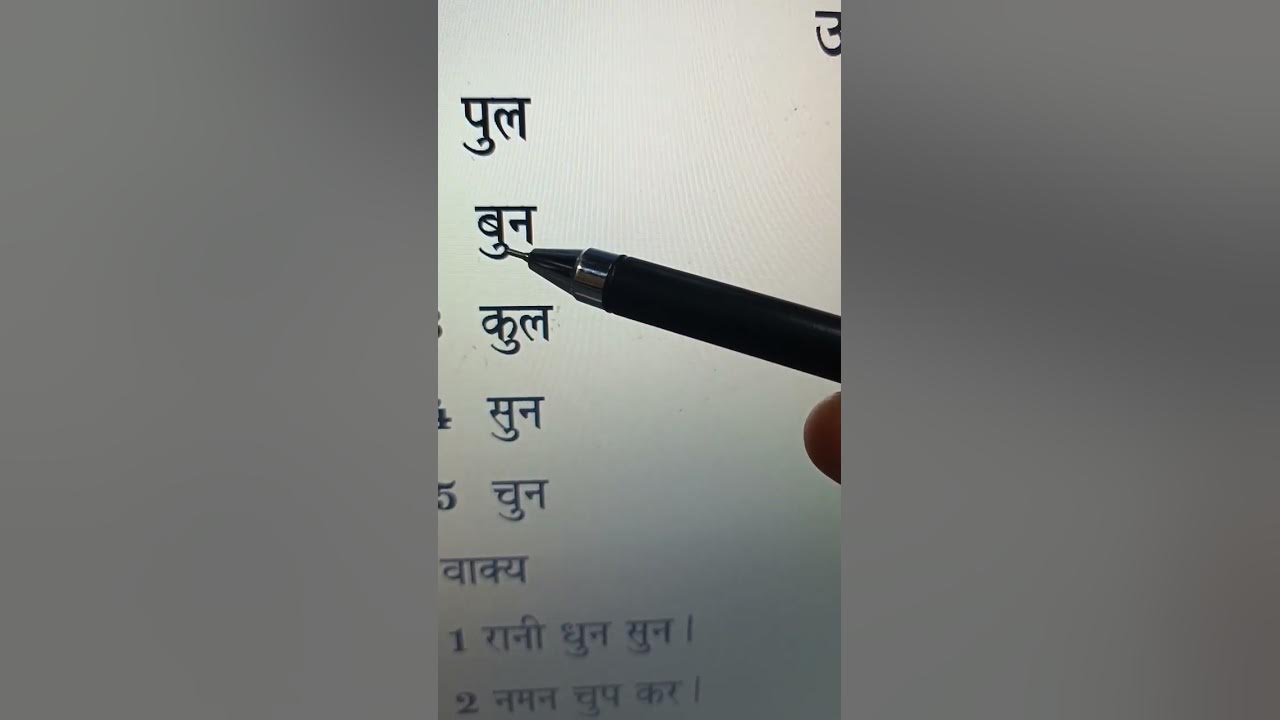 पुल
बुन
कुल
4 सुन
5 चुन
वाक्य
1 रानी धुन सुन।
2 नमन चुप कर।